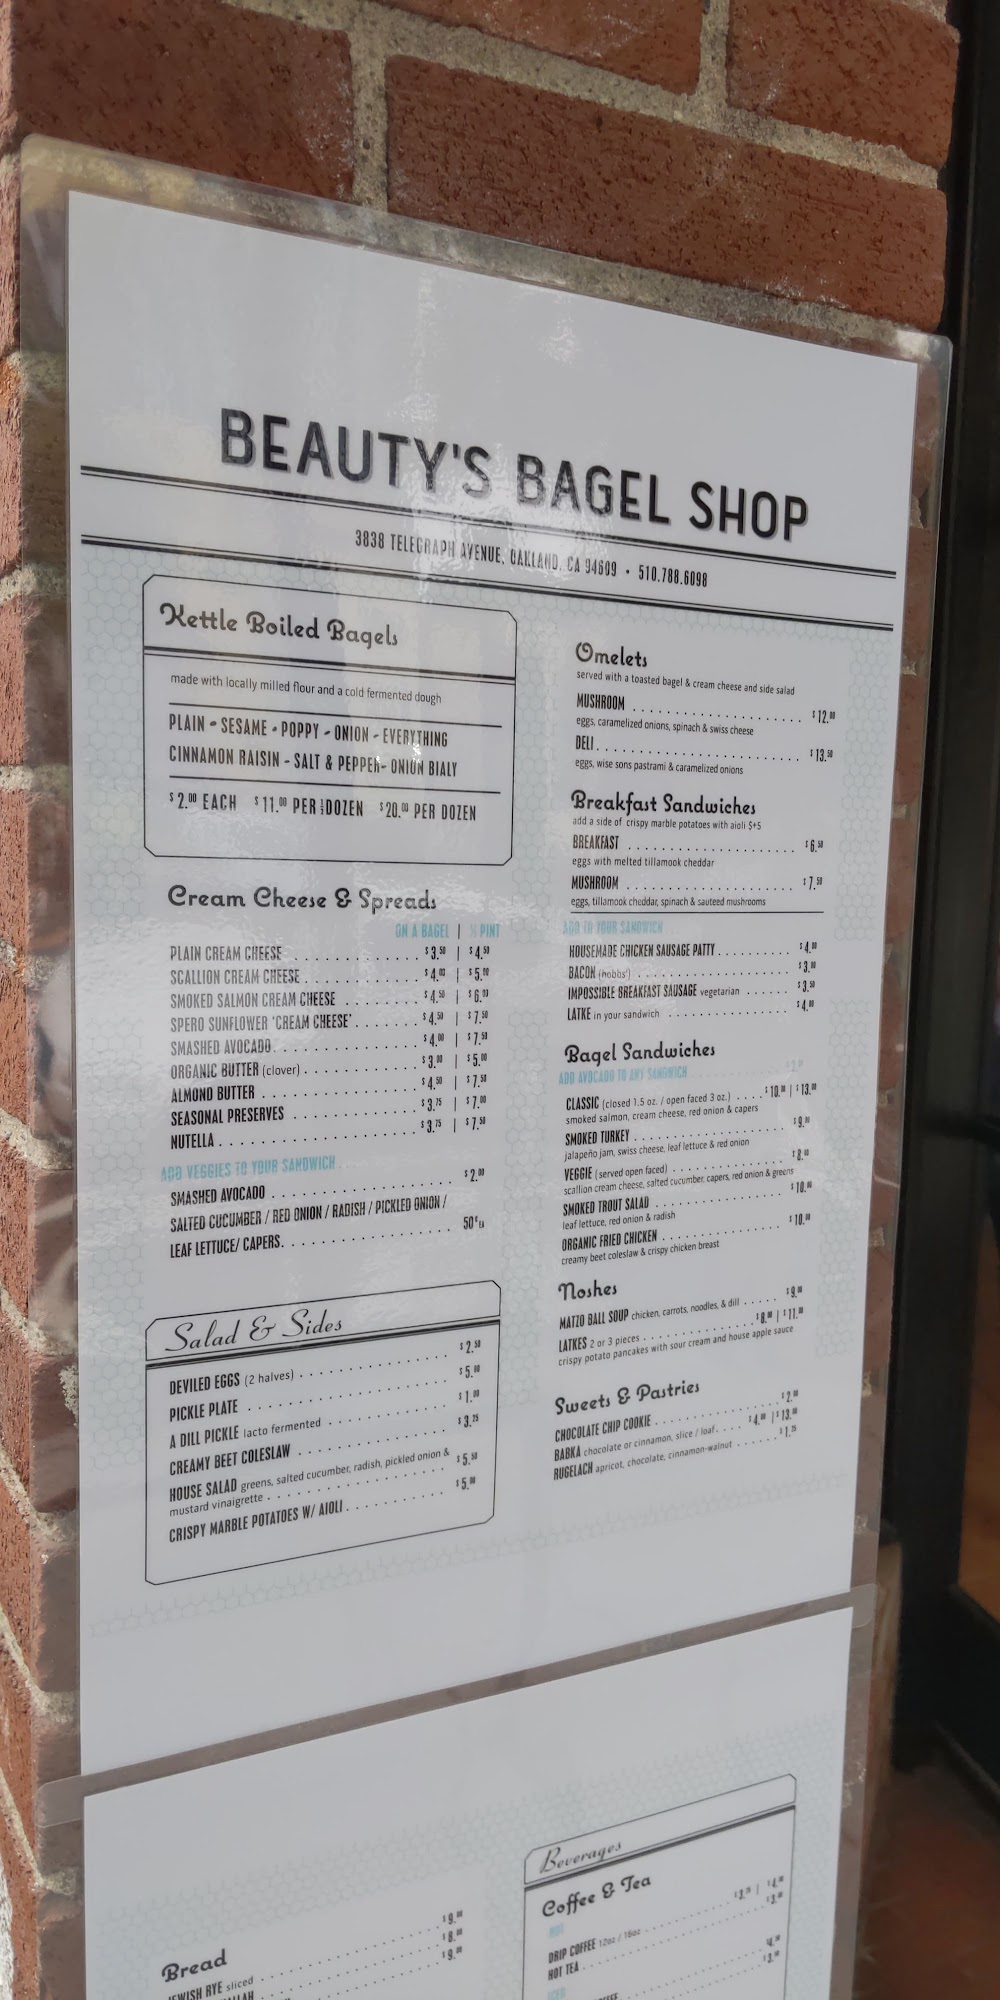 BEAUTY'S BAGEL SHOP
3838 TELEGRAPH AVENUE, OAKLAND, CA 94609 • 510.788.6098
Kettle Boiled Bagels
made with locally milled flour and a cold fermented dough
PLAIN - SESAME - POPPY - ONION - EVERYTHING
CINNAMON RAISIN - SALT & PEPPER - ONION BIALY
$2.00 EACH $11.00 PER ½DOZEN $20.00 PER DOZEN
Cream Cheese & Spreads
ON A BAGEL | ½ PINT
PLAIN CREAM CHEESE $3.50 | $4.50
SCALLION CREAM CHEESE $4.00 | $5.00
SMOKED SALMON CREAM CHEESE $4.50 | $6.00
SPERO SUNFLOWER 'CREAM CHEESE' $4.50 | $7.50
SMASHED AVOCADO $4.00 | $7.50
ORGANIC BUTTER (clover) $3.00 | $5.00
ALMOND BUTTER $4.50 | $7.50
SEASONAL PRESERVES $3.75 | $7.00
NUTELLA $3.75 | $7.50
ADD VEGGIES TO YOUR SANDWICH
SMASHED AVOCADO $2.00
SALTED CUCUMBER / RED ONION / RADISH / PICKLED ONION /
LEAF LETTUCE/ CAPERS 50¢EA
Salad & Sides
DEVILED EGGS (2 halves) $2.50
PICKLE PLATE $5.00
A DILL PICKLE lacto fermented $1.00
CREAMY BEET COLESLAW $3.75
HOUSE SALAD greens, salted cucumber, radish, pickled onion &
mustard vinaigrette $5.50
CRISPY MARBLE POTATOES W/ AIOLI $5.00
Omelets
served with a toasted bagel & cream cheese and side salad
MUSHROOM $12.00
eggs, caramelized onions, spinach & swiss cheese
DELI $13.50
eggs, wise sons pastrami & caramelized onions
Breakfast Sandwiches
add a side of crispy marble potatoes with aioli $+5
BREAKFAST $6.50
eggs with melted tillamook cheddar
MUSHROOM $7.50
eggs, tillamook cheddar, spinach & sauteed mushrooms
ADD TO YOUR SANDWICH
HOUSEMADE CHICKEN SAUSAGE PATTY $4.00
BACON (hobbs') $3.00
IMPOSSIBLE BREAKFAST SAUSAGE vegetarian $3.50
LATKE in your sandwich $4.00
Bagel Sandwiches
ADD AVOCADO TO ANY SANDWICH $2.00
CLASSIC (closed 1.5 oz. / open faced 3 oz.) $10.00 | $13.00
smoked salmon, cream cheese, red onion & capers
SMOKED TURKEY $9.00
jalapeño jam, swiss cheese, leaf lettuce & red onion
VEGGIE (served open faced) $8.00
scallion cream cheese, salted cucumber, capers, red onion & greens
SMOKED TROUT SALAD $10.00
leaf lettuce, red onion & radish
ORGANIC FRIED CHICKEN $10.00
creamy beet coleslaw & crispy chicken breast
Noshes
MATZO BALL SOUP chicken, carrots, noodles, & dill $9.00
LATKES 2 or 3 pieces $8.00 | $11.00
crispy potato pancakes with sour cream and house apple sauce
Sweets & Pastries
CHOCOLATE CHIP COOKIE $2.00
BABKA chocolate or cinnamon, slice / loaf $4.00 | $13.00
RUGELACH apricot, chocolate, cinnamon-walnut $1.75
Bread
JEWISH RYE sliced $9.00
$8.00
$9.00
Beverages
Coffee & Tea
HOT
DRIP COFFEE 12oz / 16oz
HOT TEA
ICED